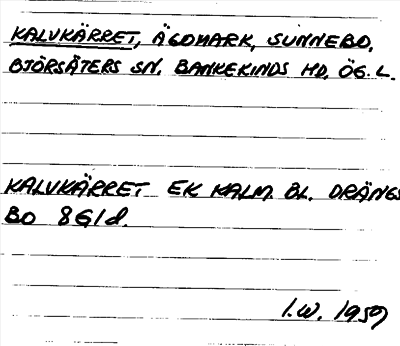 KALVKÄRRET, ÄGOMARK, SUNNEBO,
BJÖRSÄTERS SN, BANKEKINDS HD, ÖG. L.
KALVKÄRRET EK KALM. BL. DRÄNGS
BO 8G1d.
I.W. 1959